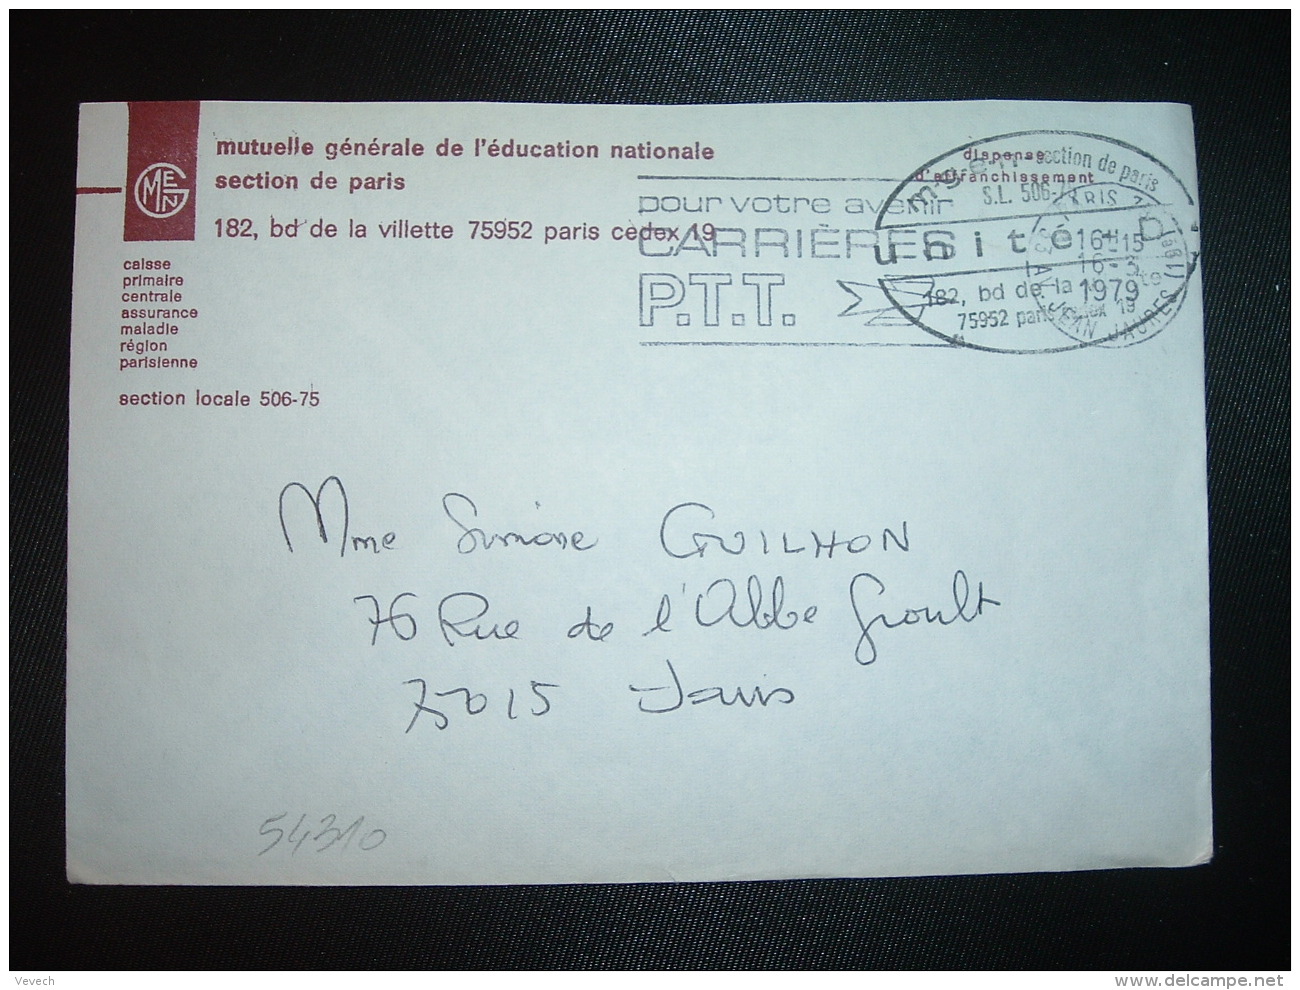 mutuelle générale de l'éducation nationale
section de paris
182, bd de la villette 75952 paris cedex 19
MGEN
caisse
primaire
centrale
assurance
maladie
région
parisienne
section locale 506-75
dispense
d'affranchissement
pour votre avenir
CARRIÈRES
P.T.T.
mgen section de paris
S.L. 506-
unité D
182, bd de la
75952 paris cedex 19
PARIS
16H15
16-3
1979
AV. JEAN JAURES (19e)
Mme Simone GUILHON
76 Rue de l'Abbe Groult
75015 Paris
54310
Vevech
www.delcampe.net